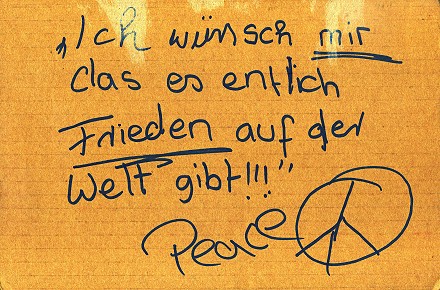 „Ich wünsch mir
das es entlich
Frieden auf der
Welt gibt!!!”
Peace